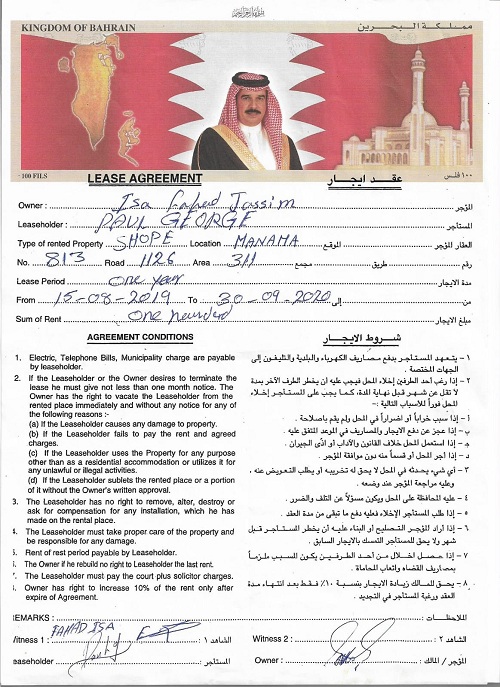 KINGDOM OF BAHRAIN
مملكة البحرين
100 FILS
١٠٠ فلس
LEASE AGREEMENT
عقد ايجار
Owner : Isa Fahed Jassim المؤجر
Leaseholder : PAUL GEORGE المستأجر
Type of rented Property SHOPE Location MANAMA الموقع العقار المؤجر
No. 813 Road 1126 Area 311 مجمع طريق رقم
Lease Period one year مدة الايجار
From 15-08-2019 To 30-09-2020 إلى من
Sum of Rent one hundred مبلغ الايجار
AGREEMENT CONDITIONS
1. Electric, Telephone Bills, Municipality charge are payable
by leaseholder.
2. If the Leaseholder or the Owner desires to terminate the
lease he must give not less than one month notice. The
Owner has the right to vacate the Leaseholder from the
rented place immediately and without any notice for any of
the following reasons :-
(a) If the Leaseholder causes any damage to property.
(b) If the Leaseholder fails to pay the rent and agreed
charges.
(c) If the Leaseholder uses the Property for any purpose
other than as a residential accommodation or utilizes it for
any unlawful or illegal activities.
(d) If the Leaseholder sublets the rented place or a portion
of it without the Owner's written approval.
3. The Leaseholder has no right to remove, alter, destroy or
ask for compensation for any installation, which he has
made on the rental place.
The Leaseholder must take proper care of the property and
be responsible for any damage.
Rent of rest period payable by Leaseholder.
The Owner if he rebuild no right to Leaseholder the last rent.
The Leaseholder must pay the court plus solicitor charges.
Owner has right to increase 10% of the rent only after
expire of Agreement.
شروط الايجار
١ - يتعهد المستأجر بدفع مصاريف الكهرباء والبلدية والتليفون إلى
الجهات المختصة .
٢ - إذا رغب أحد الطرفين إخلاء المحل فيجب عليه أن يخطر الطرف الآخر بمدة
لا تقل عن شهر قبل نهاية المدة، كما يجب على المستأجر إخلاء
المحل فوراً للأسباب التالية :-
أ - إذا سبب خراباً أو اضراراً في المحل ولم يقم باصلاحة .
ب - إذا عجز عن دفع الايجار والمصاريف في الموعد المتفق عليه .
ج - إذا استعمل المحل خلاف القانون والآداب أو أذى الجيران .
د - إذا اجر المحل أو قسماً منه دون موافقة المؤجر .
٣ - أي شيء يحدثه في المحل لا يحق له تخريبه أو يطلب التعويض عنه ،
وعليه مراجعة المؤجر عند وضعه .
٤ - عليه المحافظة على المحل ويكون مسؤلاً عن التلف والضرر .
٥ - إذا طلب المستأجر الإخلاء فعليه دفع ما تبقى من مدة العقد .
٦ - إذا أراد المؤجر التصليح أو البناء عليه أن يخطر المستأجر قبل
شهر ولا يحق للمستأجر التمسك بالايجار السابق .
٧ - إذا حصل اخلال من أحد الطرفين يكون المسبب ملزماً
بمصاريف القضاء واتعاب المحاماة .
٨ - يحق للمالك زيادة الايجار بنسبة ١٠٪ فقط بعد انتهاء مدة
العقد ورغبة المستأجر في التجديد .
EMARKS : الملاحظات :
Witness 1 : FAHAD ISA الشاهد ١ : Witness 2 : الشاهد ٢ :
easeholder المستأجر : Owner : المؤجر / المالك :